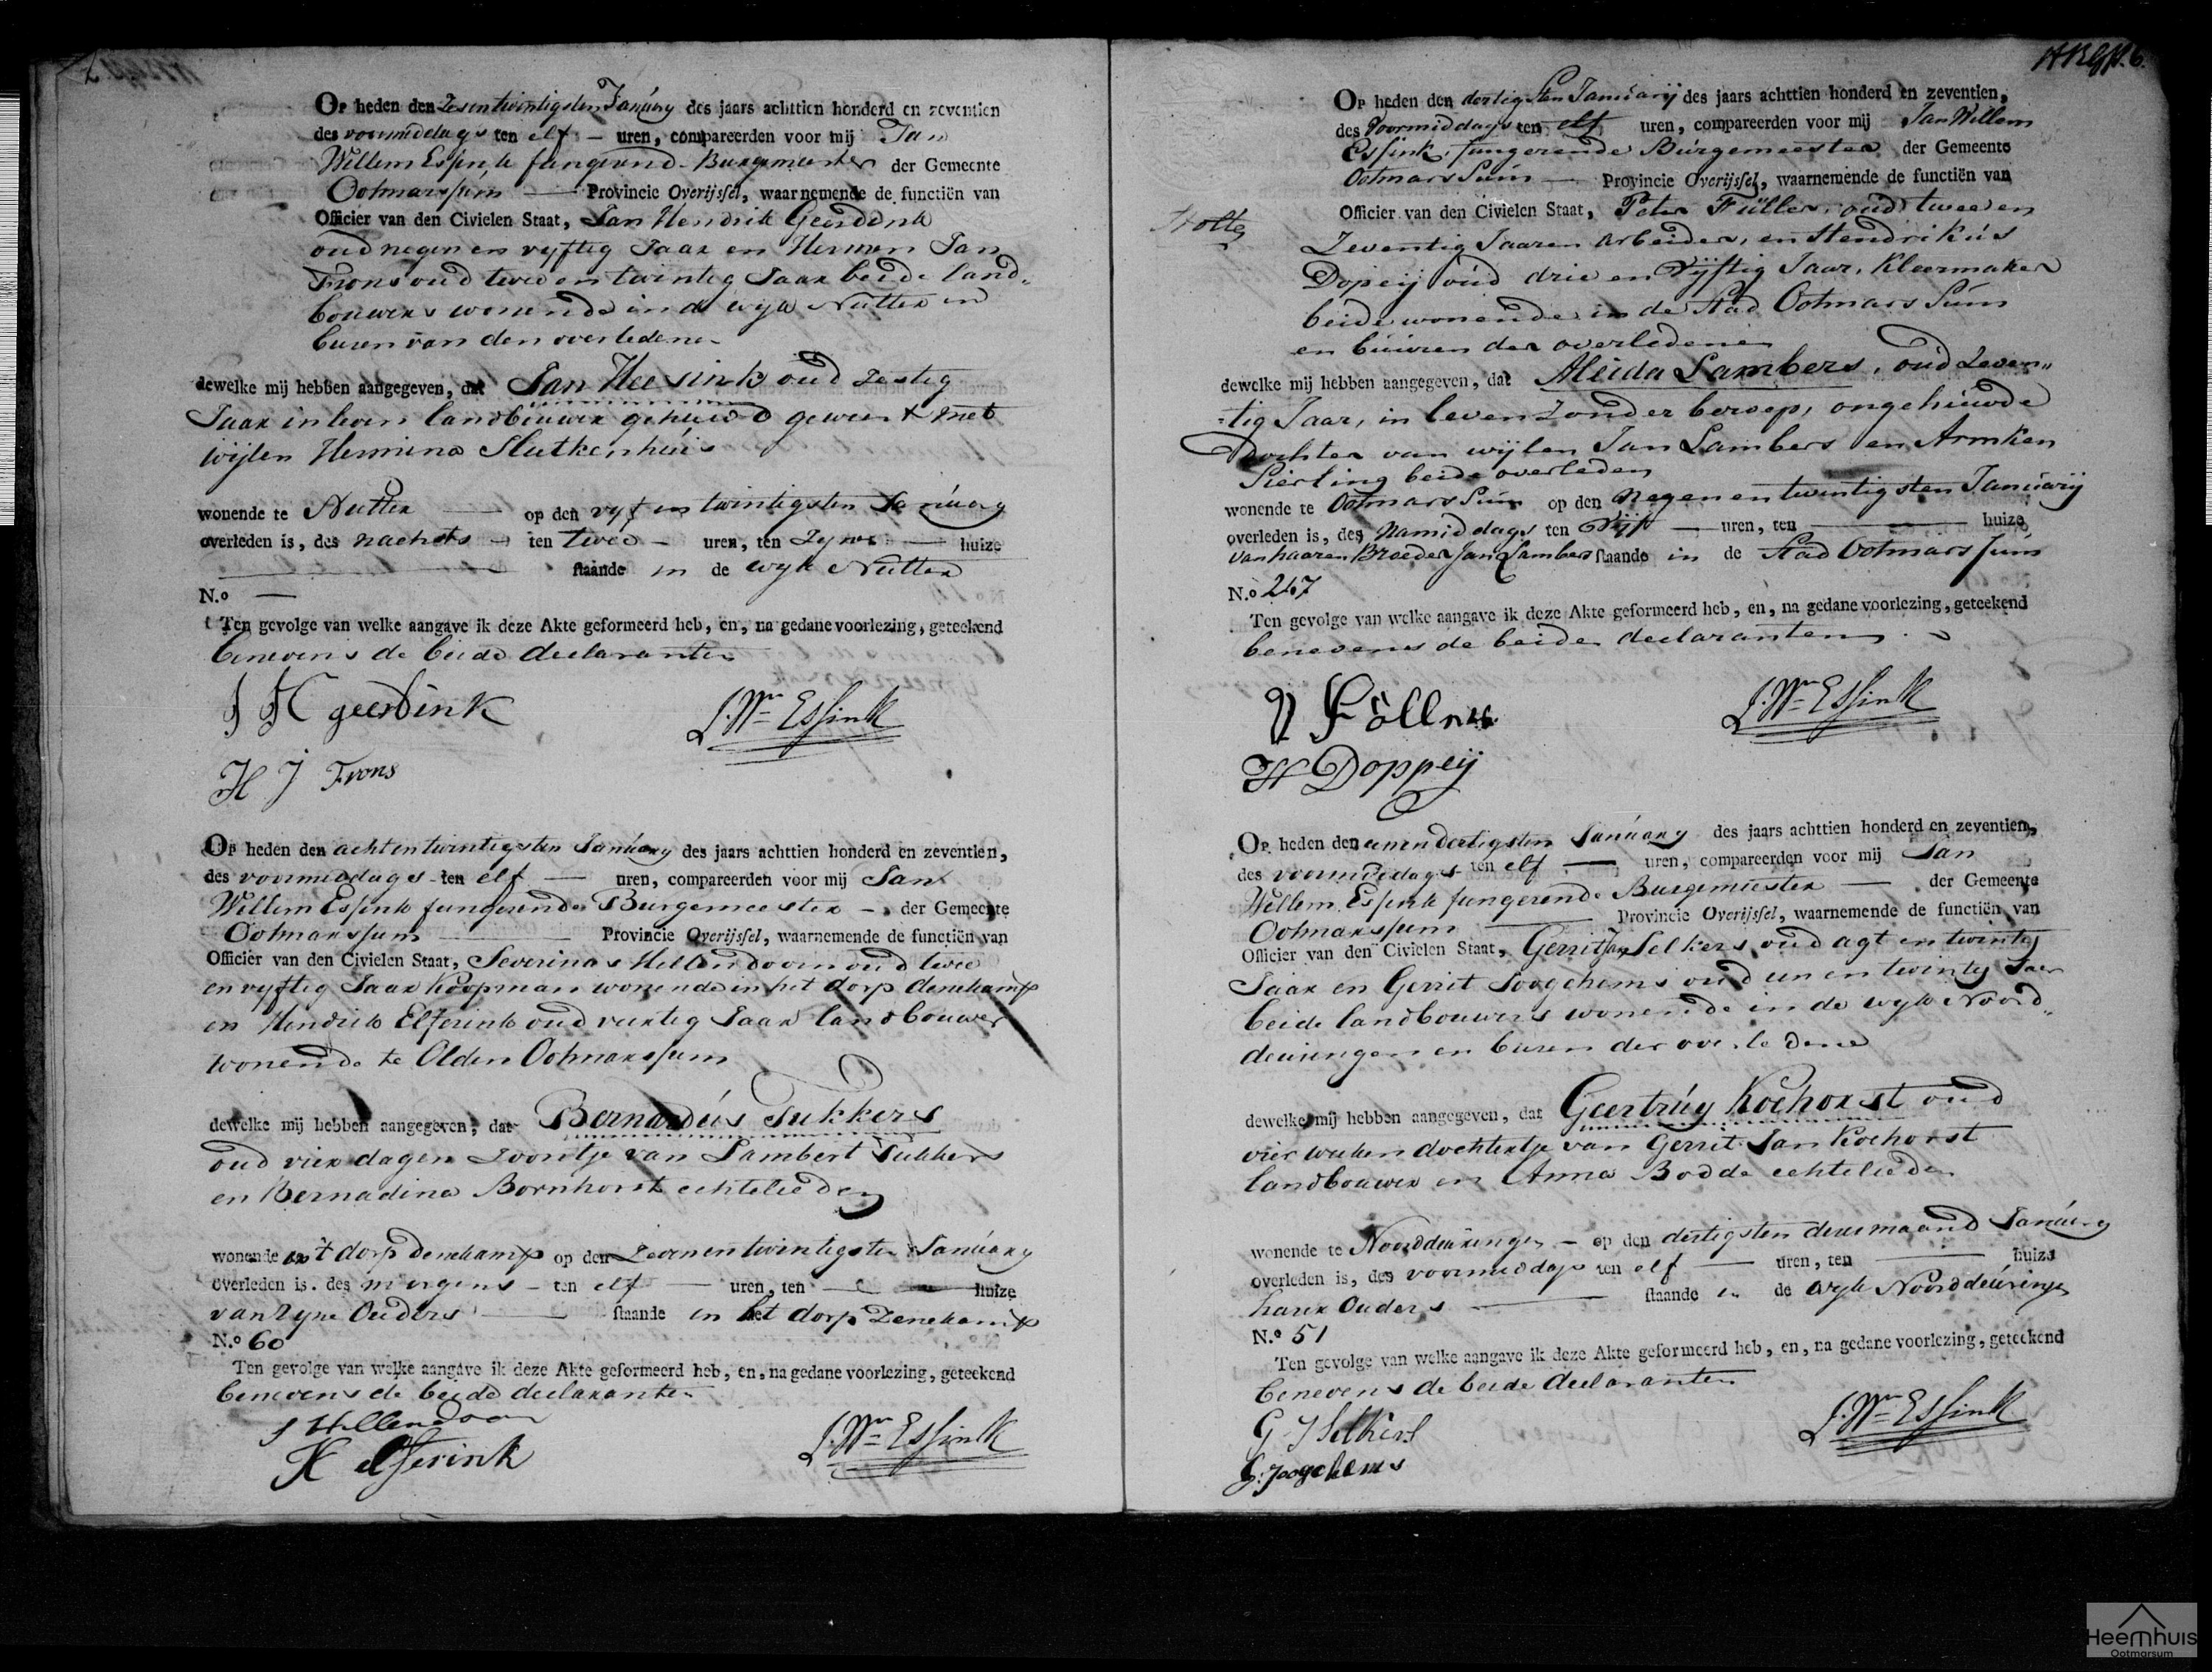 Op heden den Zesentwintigsten Janúary des jaars achttien honderd en zeventien
des voormiddags ten elf – uren, compareerden voor mij Jan
Willem Essink fungerend Burgemeester der Gemeente
Ootmarssum — Provincie Overijssel, waarnemende de functiën van
Officier van den Civielen Staat, Jan Hendrik Geerdink
oud negen en vyftig Jaar en Hermen Jan
Frons oud twee en twintig Jaar beide land„
bouwers wonende in de wyk Nutter en
buren van den overledene
dewelke mij hebben aangegeven, dat Jan Heesink oud zestig
Jaar in leven landbouwer gehuwd geweest met
wijlen Hermina Slutkenhúis
wonende te Nutter — op den vyf en twintigsten Janúary
overleden is, des nachts – ten twee – uren, ten Zyne — huize
— staande in de wyk Nutter
N.o —
Ten gevolge van welke aangave ik deze Akte geformeerd heb, en, na gedane voorlezing, geteekend
benevens de beide declaranten
J H geerdink
J. Wm Essink
H J Frons
Op heden den achtentwintigsten Janúary des jaars achttien honderd en zeventien,
des voormiddags - ten elf — uren, compareerden voor mij Jan
Willem Essink fungerende Burgemeester –. der Gemeente
Ootmarssum — Provincie Overijssel, waarnemende de functiën van
Officier van den Civielen Staat, Severinas Hellendoorn oud twee
en vyftig Jaar Koopman wonende in het dorp denekamp
en Hendrik Elferink oud veertig Jaar landbouwer
wonende te Olden Ootmarssum
dewelke mij hebben aangegeven, dat Bernardús Tukkers
oud vier dagen Zoontje van Lambert Tukkers
en Bernadina Bornhorst echtelieden
wonende in't dorp denekamp op den Zevenentwintigsten Janúary
overleden is. des morgens – ten elf — uren, ten — huize
van Zyne Ouders — staande in het dorp Denekamp
N.o 60
Ten gevolge van welke aangave ik deze Akte geformeerd heb, en, na gedane voorlezing, geteekend
benevens de beide declaranten
S Hellendoorn
H elferink
J. Wm Essink
Op heden den dertigsten Janúarij des jaars achttien honderd en zeventien,
des Voormiddags ten elf uren, compareerden voor mij Jan Willem
Essink, fungerende Búrgemeester der Gemeente
Ootmarssúm — Provincie Overijssel, waarnemende de functiën van
Officier van den Civielen Staat, Peter Füller, oud twee en
Zeventig Jaaren Arbeider, en Hendrikús
Dopeij oúd drie en Vijftig Jaar, Kleermaker
beide wonende in de Stad Ootmarssúm
en búúren der overledene
dewelke mij hebben aangegeven, dat Aleida Lambers, oud Zeven„
-tig Jaar, in leven Zonder beroep, ongehúwde
Dochter van wijlen Jan Lambers en Armken
Sierling beide overleden
wonende te Ootmarssúm op den Negen en twintigsten Janúarij
overleden is, des Namiddags ten Vijf — uren, ten — huize
van haaren Broeder Jan Lambers staande in de Stad Ootmarssúm
N.o 247
Ten gevolge van welke aangave ik deze Akte geformeerd heb, en, na gedane voorlezing, geteekend
benevens de beide declaranten
J. Wm Essink
H Doppeij
Op heden den eenendertigsten Janúary des jaars achttien honderd en zeventien,
des voormiddags ten elf — uren, compareerden voor mij Jan
Willem Essink fungerende Burgemeester — der Gemeente
Ootmarssum — Provincie Overijssel, waarnemende de functiën van
Officier van den Civielen Staat, Gerrit Jan Selkers oud agt en twintig
Jaar en Gerrit Joogchems oud een en twintig Jaar
beide landbouwers wonende in de wyk Noord„
deuringen en buren der overledene
dewelke mij hebben aangegeven, dat Geertrúy Kochorst oud
vier weken dochtertje van Gerrit Jan Kochorst
landbouwer en Anna Bodde echtelieden
wonende te Noorddeuringen – op den dertigsten dezer maand Janúary
overleden is, des voormiddags ten elf — uren, ten — huize
harer Ouders — staande in de wyk Noorddeúringen
N.o 51
Ten gevolge van welke aangave ik deze Akte geformeerd heb, en, na gedane voorlezing, geteekend
benevens de beide declaranten
J. Wm Essink
G J Selkers
G: Joogchems
Heemhuis
Ootmarsum